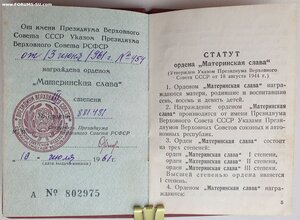 FORUMS-SU.COM
От имени Президиума Верховного
Совета СССР Указом Президиума
Верховного Совета РСФСР
от 13 июня 1961 г. № 454
награждена орденом
„Материнская слава"
степени
881491
Президиума
Верховного Совета РСФСР
10 июля 1961 г.
А № 802975
СТАТУТ
ордена „Материнская слава"
(Утвержден Указом Президиума Верховного
Совета СССР от 18 августа 1944 г.)
1. Орденом „Материнская слава" награждаются
матери, родившие и воспитавшие
семь, восемь и девять детей.
2. Награждение орденом „Материнская слава"
производится от имени Президиума
Верховного Совета СССР указами Президиумов
Верховных Советов союзных и автономных
республик.
3. Орден „Материнская слава" состоит
из трех степеней:
Орден „Материнская слава" I степени,
Орден „Материнская слава" II степени,
Орден „Материнская слава" III степени.
Высшей степенью ордена является
I степень.
4. Орденом „Материнская слава" I степени
награждаются:
5